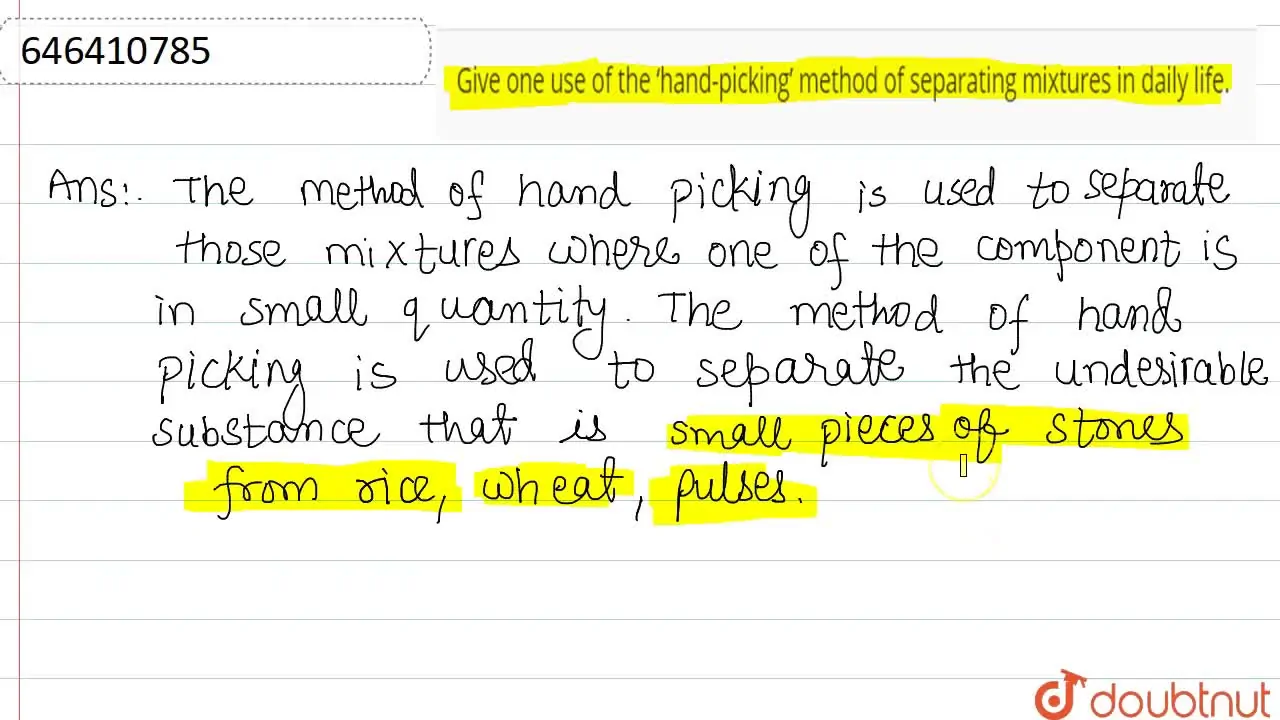 646410785
Give one use of the ‘hand-picking’ method of separating mixtures in daily life.
Ans:. The method of hand picking is used to separate
those mixtures where one of the component is
in small quantity. The method of hand
picking is used to separate the undesirable
substance that is small pieces of stones
from rice, wheat, pulses.
doubtnut